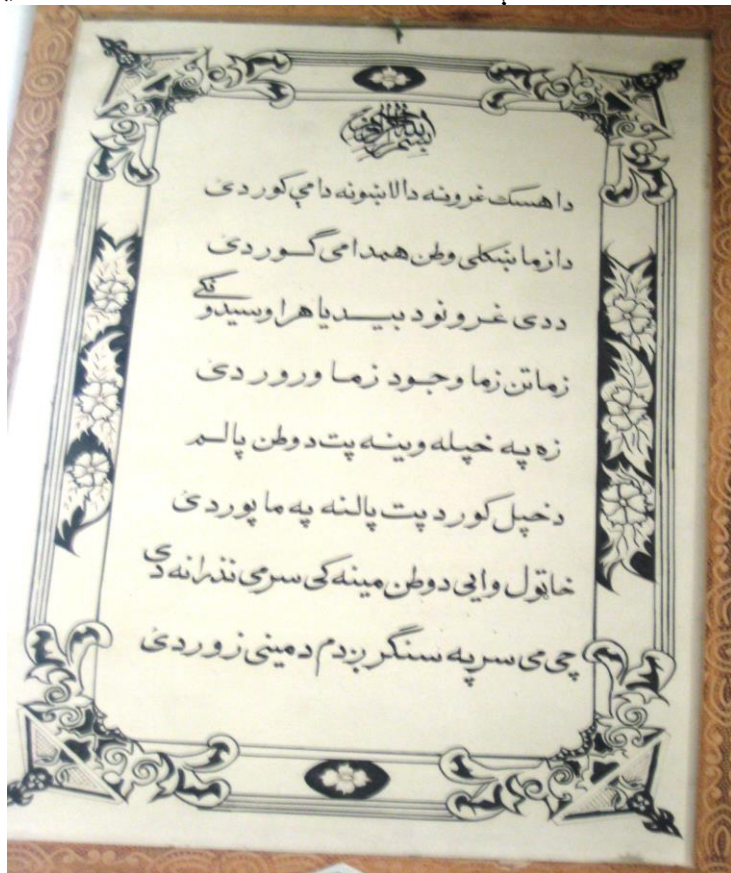 بسم الله الرحمن الرحیم
دا هسک غرونه دا لاښونه دا می کور دی
دا زما ښکلی وطن همدا می گور دی
ددی غرونو د بیدیا هر اوسیدونکی
زما تن زما وجود زما ورور دی
زه په خپله وینه پت د وطن پالم
د خپل کور د پت پالنه په ما پور دی
خاټول وایی د وطن مینه کی سر می نذرانه دی
چی می سر په سنگر ږدم د مینی زور دی